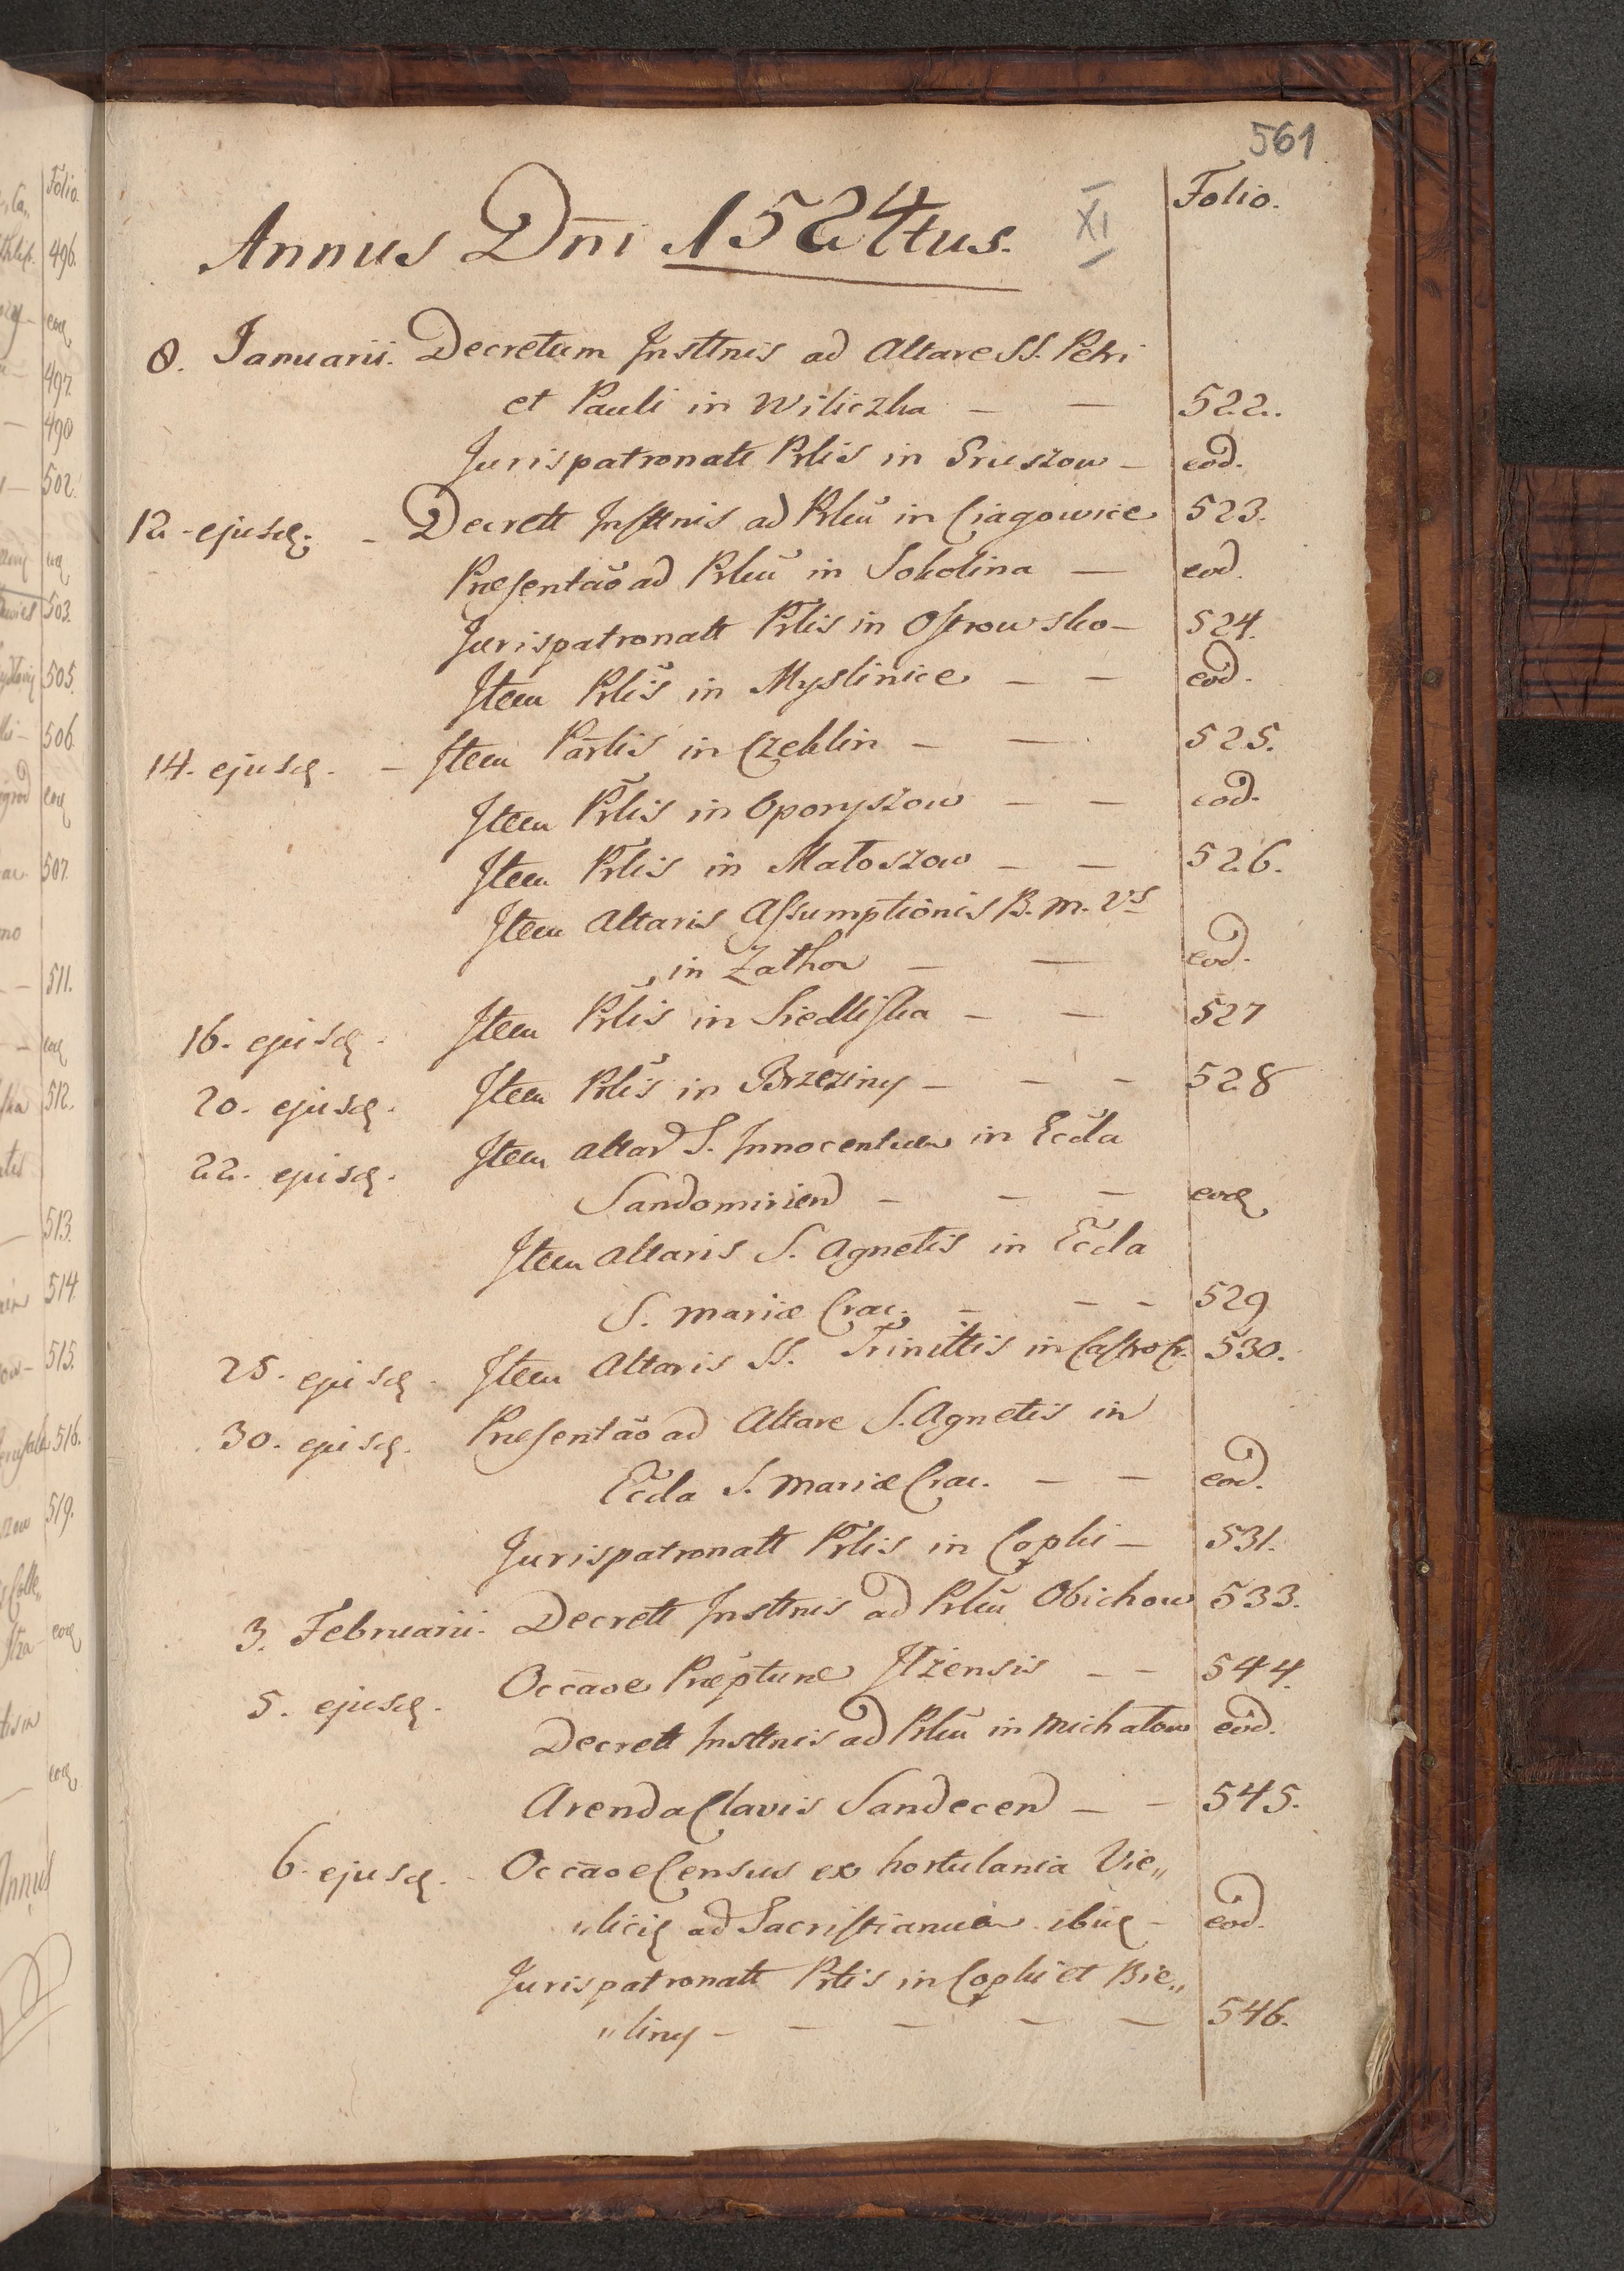 561
Folio.
Annus Dni 1524tus. XI
8. Januarii. Decretum Insttnis ad Altare SS. Petri
et Pauli in Wiliczka — — 522.
Jurispatronatt Prlis in Gruszow — eod.
12 - ejusd. - Decrett Insttnis ad Prlm in Ciągowice 523.
Præsentao ad Prlm in Sokolina — eod.
Jurispatronatt Prlis in Ostrowsko — 524.
Item Prlis in Myslinice — — eod.
14. ejusd. - Item Parlis in Czeklin — — 525.
Item Prlis in Oporyszow — — eod.
Item Prlis in Małoszow — — 526.
Item Altaris Assumptionis B. M. Vs
in Zathor — — eod.
16. ejusd. Item Prlis in Siedliska — — 527
20. ejusd. Item Prlis in Brzeziny — — — 528
22. ejusd. Item altar S. Innocentum in Eccla
Sandomirien — — — eod
Item altaris S. Agnetis in Eccla
S. Mariæ Crac. — — — 529
25. ejusd. Item Altaris SS. Trinittis in Castro Cr. 530.
30. ejusd. Præsentao ad Altare S. Agnetis in
Eccla S. Mariæ Crac. — — eod.
Jurispatronatt Prlis in Copki — 531.
3. Februarii. Decrett Insttnis ad Prlm Obichow 533.
5. ejusd. Occaoe Præpturæ Ilzensis — — 544.
Decrett Insttnis ad Prlm in Michałow eod.
Arenda Clavis Sandecen — — 545.
6. ejusd. Occaoe Census ex hortulania Vie„
„licig ad Sacristianum ibid — eod.
Jurispatronatt Prlis in Copki et Bie„
„liny — — — — — 546.